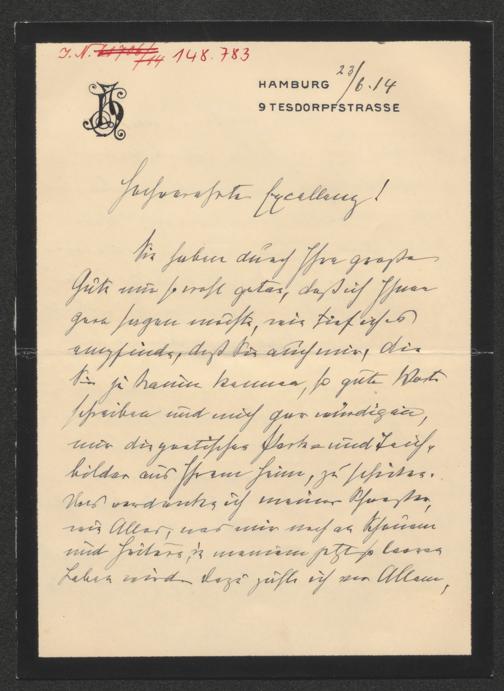 J. N. 148.783
JH
HAMBURG 23/6.14
9 TESDORPFSTRASSE
Hochverehrte Excellenz!
Sie haben durch Ihre große
Güte mir so wohl getan, daß ich Ihnen
gern sagen möchte, wie tief ich es
empfinde, daß Sie auch mir, die
Sie ja kaum kennen, so gute Worte
schreiben und mich gar würdigen,
mir die poetischen Park- und Teich-
bilder aus Ihrem Heim, zu schicken.
Das verdanke ich meiner Schwester,
wie Alles, was mir noch an Schönem
und in meinem jetzt so leeren
Leben wird. Dazu zähle ich vor Allem,